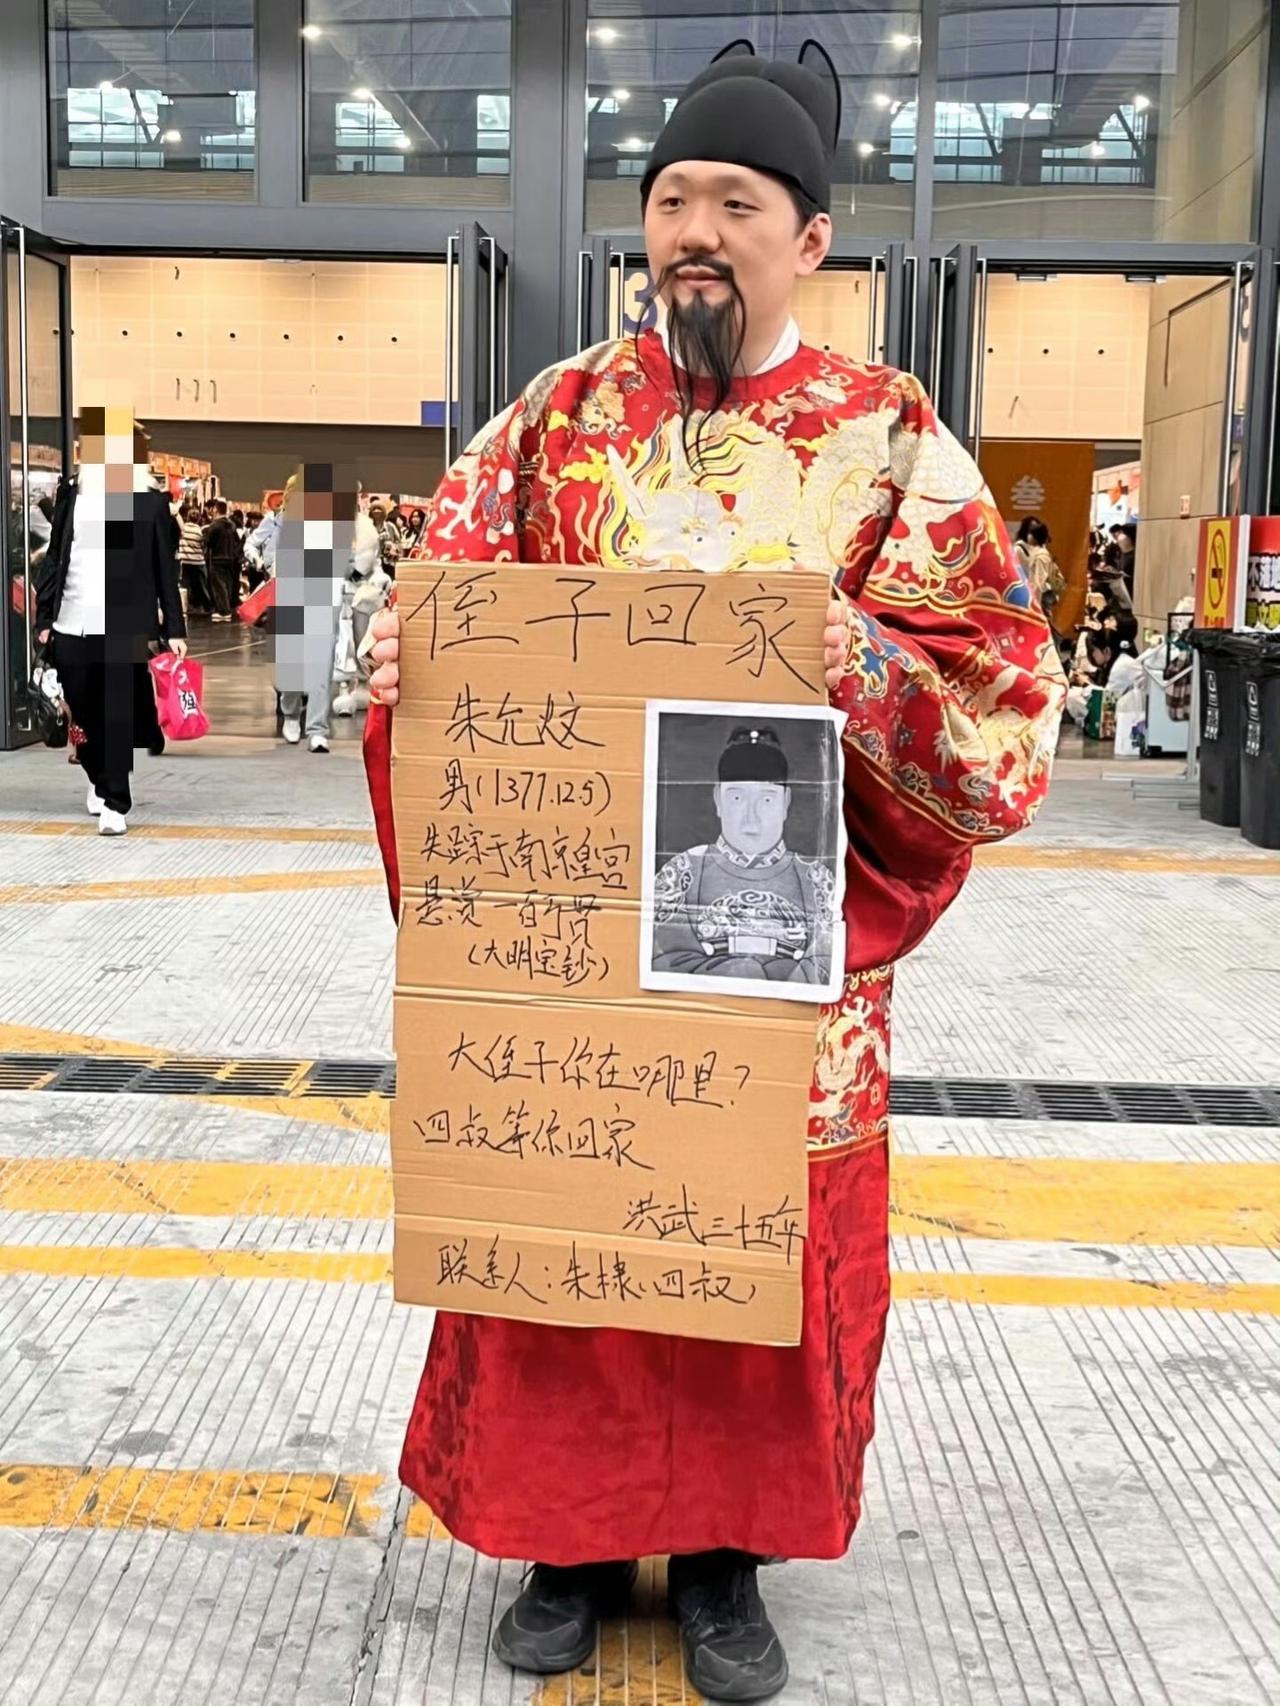 侄子回家
朱允炆
男(1377.12.5)
失踪于南京皇宫
悬赏一百万贯
(大明宝钞)
大侄子你在哪里?
四叔等你回家
洪武三十五年
联系人:朱棣(四叔)
3
叁